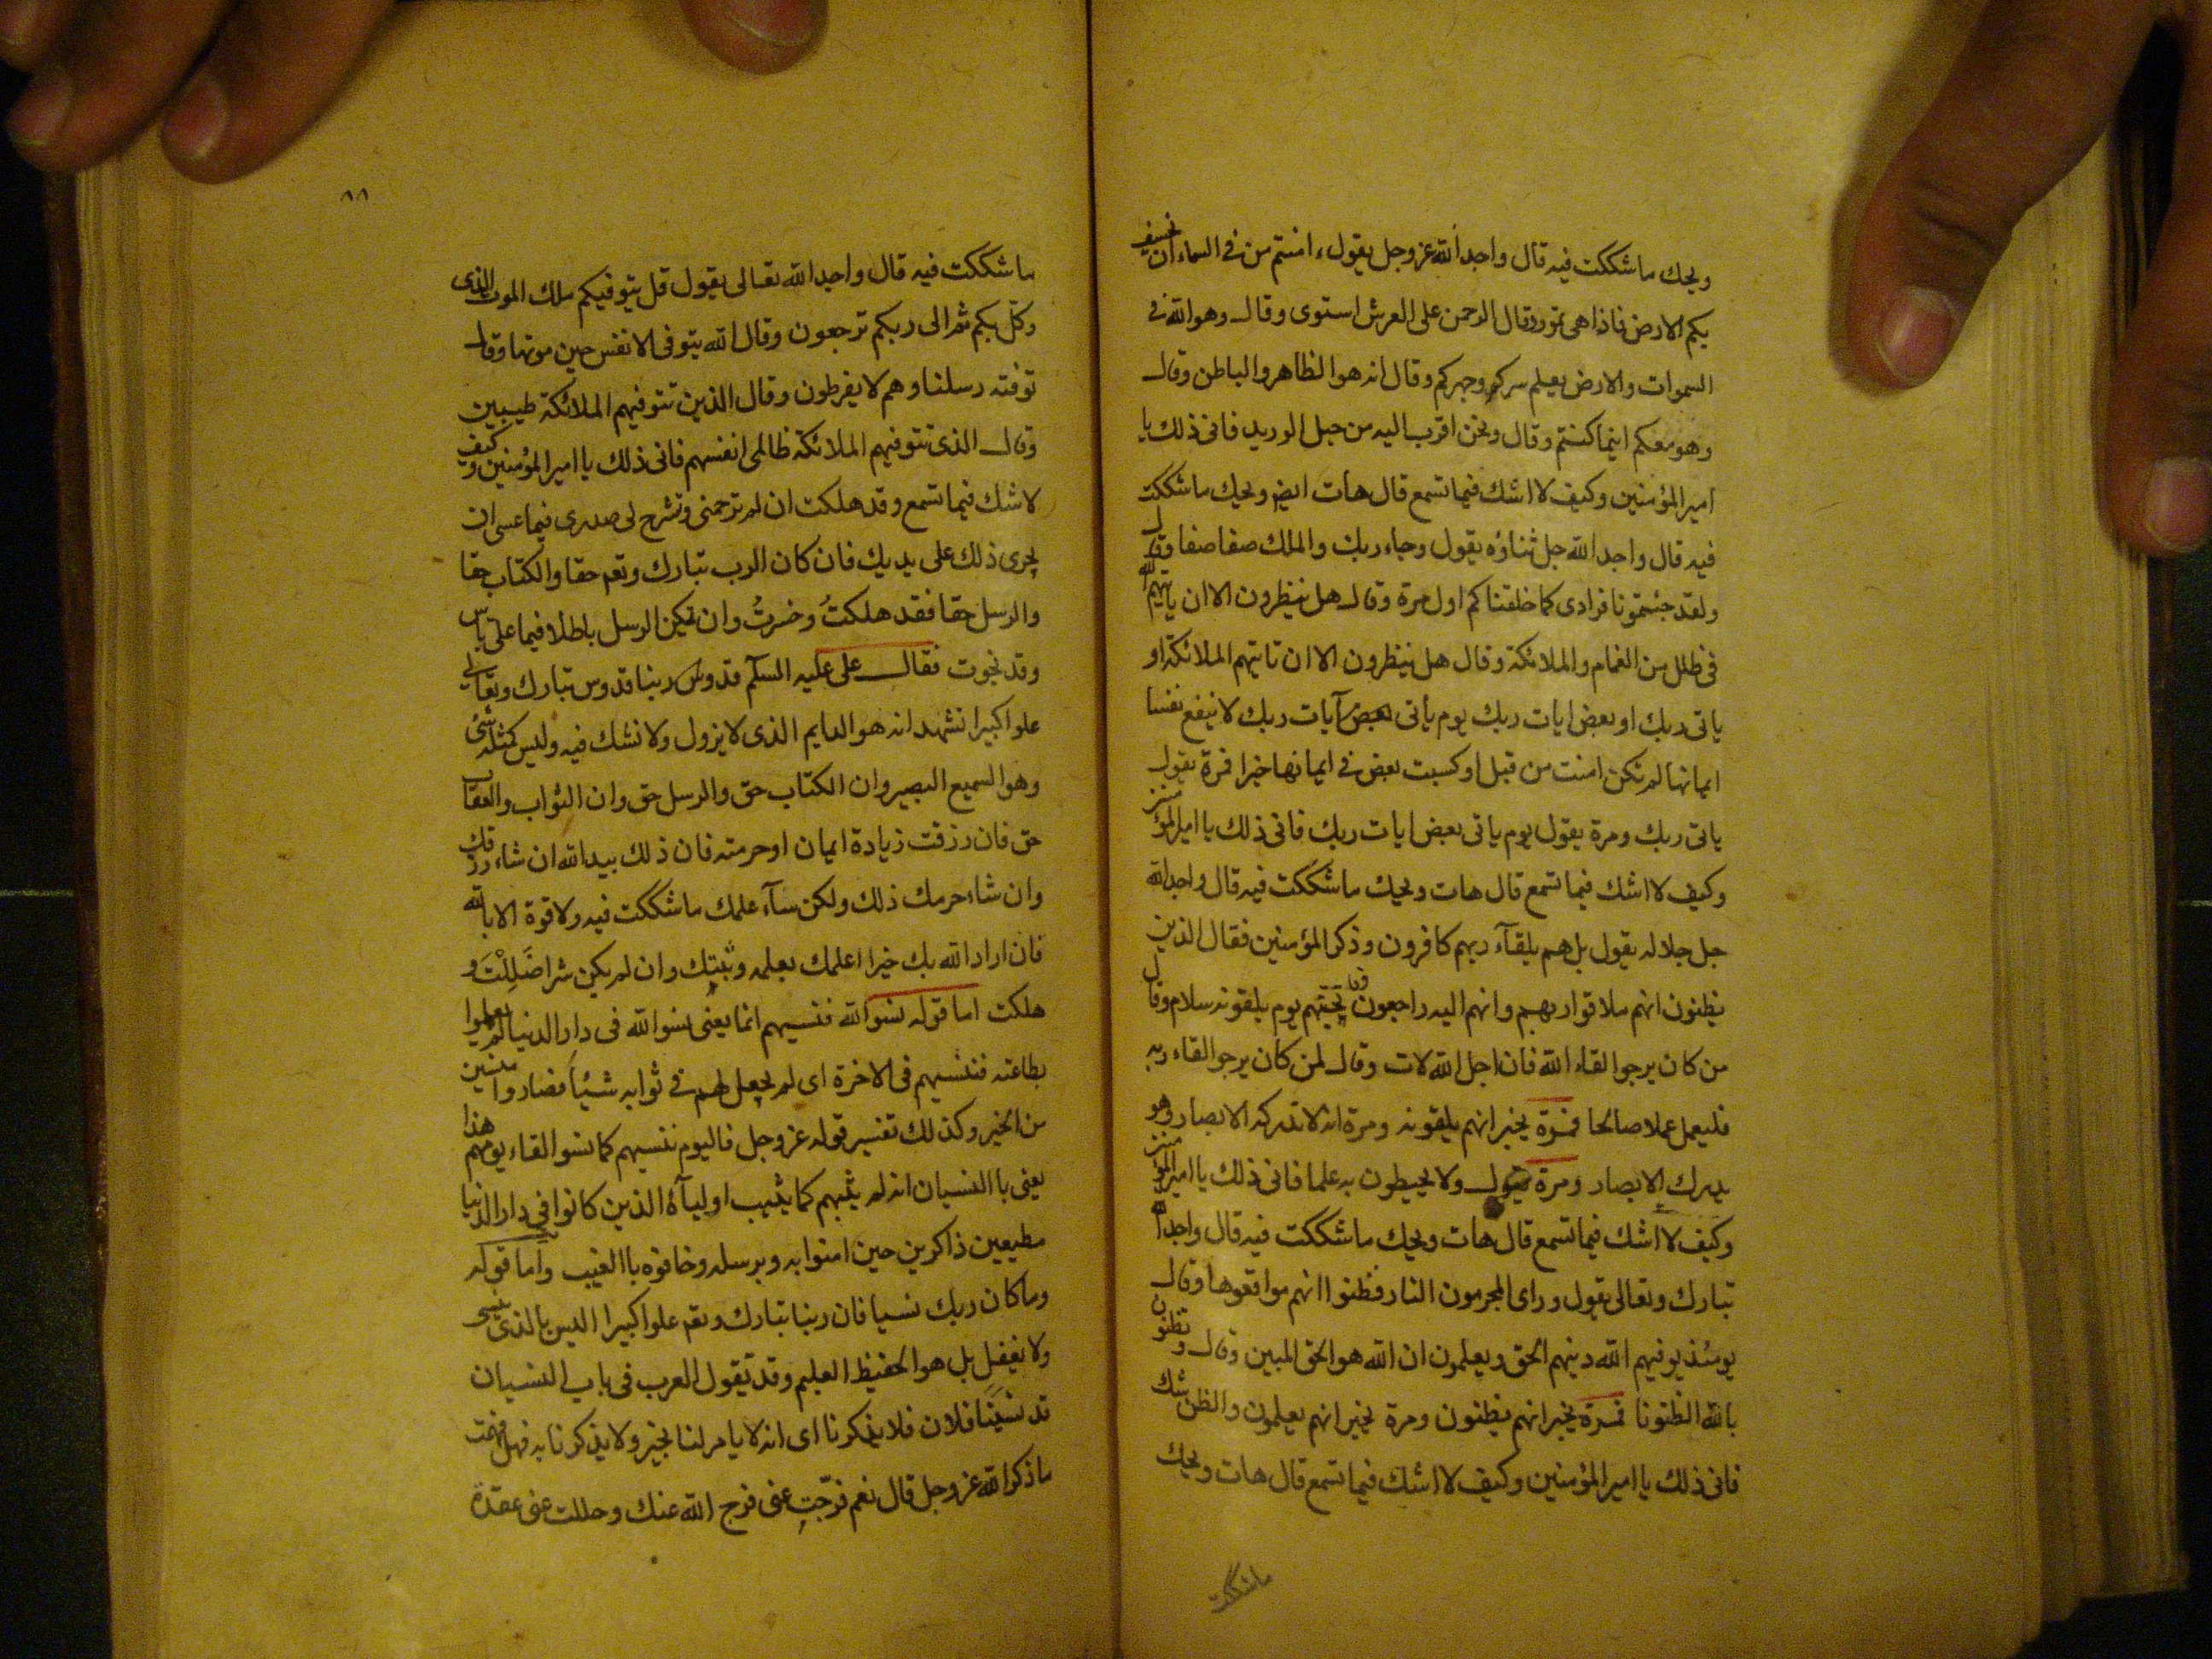 ويحك ما شككت فيه قال واجد الله عز وجل يقول ءامنتم من فى السماء ان يخسف
بكم الارض فاذا هى تمور وقال الرحمن على العرش استوى وقال وهو الله فى
السموات والارض يعلم سركم وجهركم وقال انه هو الظاهر والباطن وقال
وهو معكم اينما كنتم وقال ونحن اقرب اليه من حبل الوريد فانى ذلك يا
امير المؤمنين وكيف لا اشك فيما تسمع قال هات ايضا ويحك ما شككت
فيه قال واجد الله جل ثناؤه يقول وجاء ربك والملك صفا صفا وقال
ولقد جئتمونا فرادى كما خلقناكم اول مرة وقال هل ينظرون الا ان ياتيهم الله
فى ظلل من الغمام والملائكة وقال هل ينظرون الا ان تاتيهم الملائكة او
ياتى ربك او بعض ايات ربك يوم يأتى بعض آيات ربك لا ينفع نفسا
ايمانها لم تكن امنت من قبل او كسبت بعض فى ايمانها خيرا فمرة يقول
ياتى ربك ومرة يقول يوم ياتى بعض ايات ربك فانى ذلك يا امير المؤمنين
وكيف لا اشك فيما تسمع قال هات ويحك ما شككت فيه قال واجد الله
جل جلاله يقول بل هم بلقآء ربهم كافرون وذكر المؤمنين فقال الذين
يظنون انهم ملاقوا ربهم وانهم اليه راجعون وقال تحيتهم يوم يلقونه سلام وقال
من كان يرجوا لقاء الله فان اجل الله لات وقال لمن كان يرجوا لقاء ربه
فليعمل عملا صالحا فمرة يخبر انهم يلقونه ومرة انه لا تدركه الابصار وهو
يدرك الابصار ومرة يقول ولا يحيطون به علما فانى ذلك يا امير المؤمنين
وكيف لا اشك فيما تسمع قال هات ويحك ما شككت فيه قال واجد الله
تبارك وتعالى يقول وراى المجرمون النار فظنوا انهم مواقعوها وقال
يومئذ يوفيهم الله دينهم الحق ويعلمون ان الله هو الحق المبين وقال وتظنون
بالله الظنونا فمرة يخبر انهم يظنون ومرة يخبر انهم يعلمون والظن شك
فانى ذلك يا امير المؤمنين وكيف لا اشك فيما تسمع قال هات ويحك
ما شككت
٨٨
ما شككت فيه قال واجد الله تعالى يقول قل يتوفيكم ملك الموت الذى
وكل بكم ثم الى ربكم ترجعون وقال الله يتوفى الانفس حين موتها وقال
توفته رسلنا وهم لا يفرطون وقال الذين تتوفيهم الملائكة طيبين
وقال الذى تتوفيهم الملائكة ظالمى انفسهم فانى ذلك يا امير المؤمنين وكيف
لا شك فيما تسمع وقد هلكت ان لم ترحمنى وتشرح لى صدرى فيما عسى ان
يجرى ذلك على يديك فان كان الرب تبارك وتعم حقا والكتاب حقا
والرسل حقا فقد هلكتُ وخسرتُ وان تكن الرسل باطلا فيما على باس
وقد نجوت فقال على عليه السلم قدوس ربنا قدوس تبارك وتعالى
علوا كبيرا نشهد انه هو الدايم الذى لا يزول ولا نشك فيه وليس كمثله شئ
وهو السميع البصير وان الكتاب حق والرسل حق وان الثواب والعقاب
حق فان رزقت زيادة ايمان او حرمته فان ذلك بيد الله ان شاء رزقك
وان شاء حرمك ذلك ولكن سآء علمك ما شككت فيه ولا قوة الا بالله
فان اراد الله بك خيرا اعلمك بعلمه وثبتك وان لم يكن شرا ضَلِلْتَ و
هلكت اما قوله نسوا الله فنسيهم انما يعنى نسوا الله فى دار الدنيا لم يعملوا
بطاعته فنسيهم فى الاخرة اى لم يجعل لهم فى ثوابه شيئا فصاروا منسين
من الخير وكذلك تفسير قوله عز وجل فاليوم ننسيهم كما نسوا لقاء يومهم هذا
يعنى باالنسيان انه لم يثبهم كما يثيب اوليآءه الذين كانوا فى دار الدنيا
مطيعين ذاكرين حين امنوا به وبرسله وخافوه باالغيب واما قوله
وما كان ربك نسيا فان ربنا تبارك وتعم علوا كبيرا ليس بالذى ينسى
ولا يغفل بل هو الحفيظ العليم وقد تقول العرب فى باب النسيان
قد نسينا فلان فلا يذكرنا اى انه لا يامر لنا بخير ولا يذكرنا به فهل فهمت
ما ذكر الله عز وجل قال نعم فرجت عنى فرج الله عنك وحللت عنى عقدة